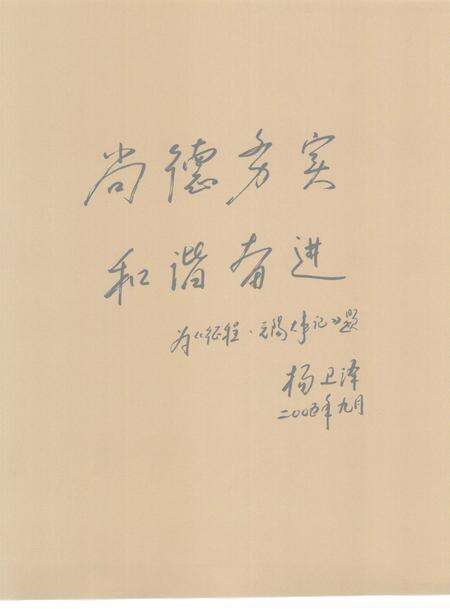 尚德务实
和谐奋进
为《征程·无锡大事记》题
杨卫泽
二00五年九月